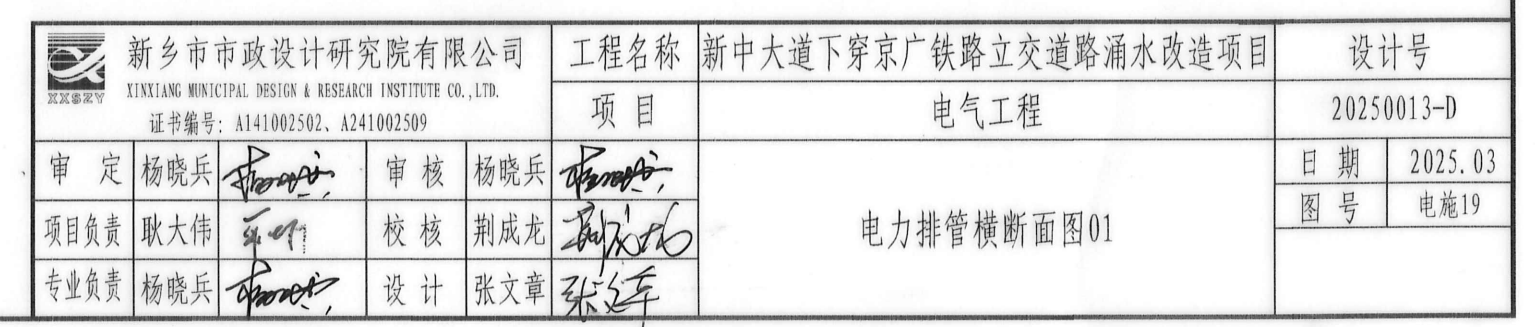 新乡市市政设计研究院有限公司
XINXIANG MUNICIPAL DESIGN & RESEARCH INSTITUTE CO.,LTD.
XXSZY
证书编号: A141002502、A241002509
工程名称 新中大道下穿京广铁路立交道路涌水改造项目 设计号
项目 电气工程 20250013-D
审定 杨晓兵 杨晓兵 审核 杨晓兵 杨晓兵
项目负责 耿大伟 校核 荆成龙 荆成龙
专业负责 杨晓兵 杨晓兵 设计 张文章 张文章
电力排管横断面图01
日期 2025.03
图号 电施19